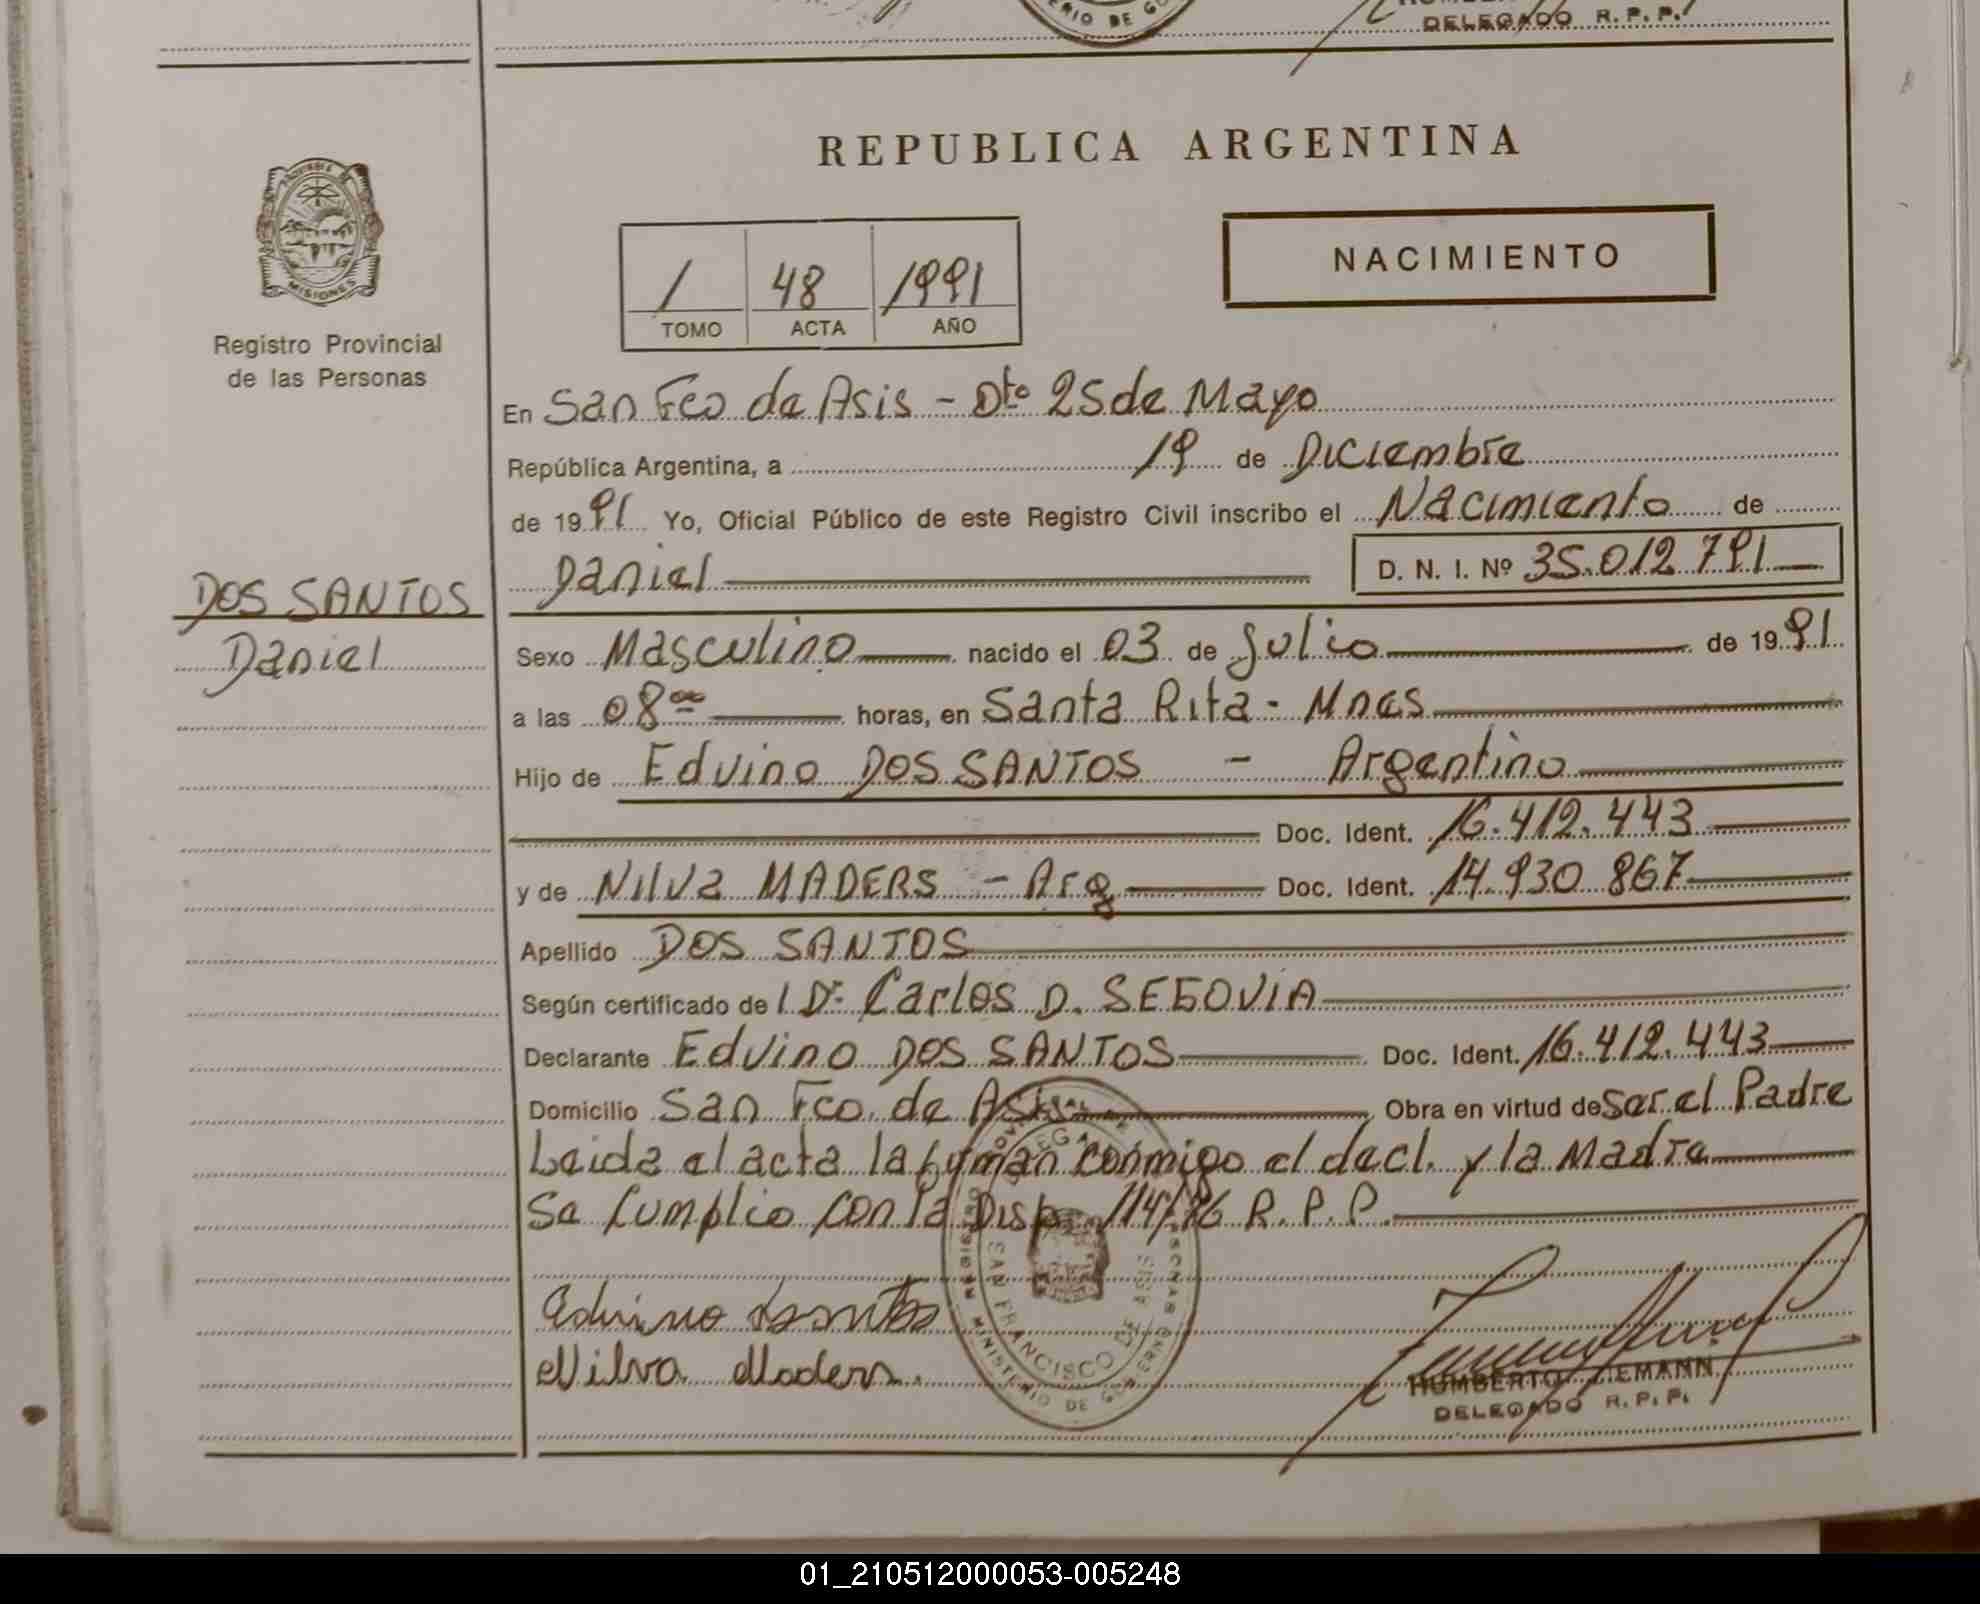 DELEGADO R. P. P.
REPUBLICA ARGENTINA
PROVINCIA DE
MISIONES
Registro Provincial
de las Personas
NACIMIENTO
1 48 1991
TOMO ACTA AÑO
En San Fco de Asis - Dto 25 de Mayo
República Argentina, a 19 de Diciembre
de 1991 Yo, Oficial Público de este Registro Civil inscribo el Nacimiento de
Daniel D. N. I. Nº 35.012.791
DOS SANTOS
Daniel
Sexo Masculino nacido el 03 de Julio de 1991
a las 08 00 horas, en Santa Rita - Mnes
Hijo de Edvino DOS SANTOS - Argentino
Doc. Ident. 16.412.443
y de Nilva MADERS - Arg Doc. Ident. 14.930.867
Apellido DOS SANTOS
Según certificado del Dr. Carlos D. SEGOVIA
Declarante Edvino DOS SANTOS Doc. Ident. 16.412.443
Domicilio San Fco. de Asis Obra en virtud de Ser el Padre
Leida el acta la firman conmigo el decl. y la Madre
Se Cumplio con la Disp. 114/86 R. P. P.
Edvino Santos
Nilva Maders.
SAN FRANCISCO DE ASIS
MINISTERIO DE GOBIERNO
HUMBERTO
DELEGADO R. P. P.
01_210512000053-005248